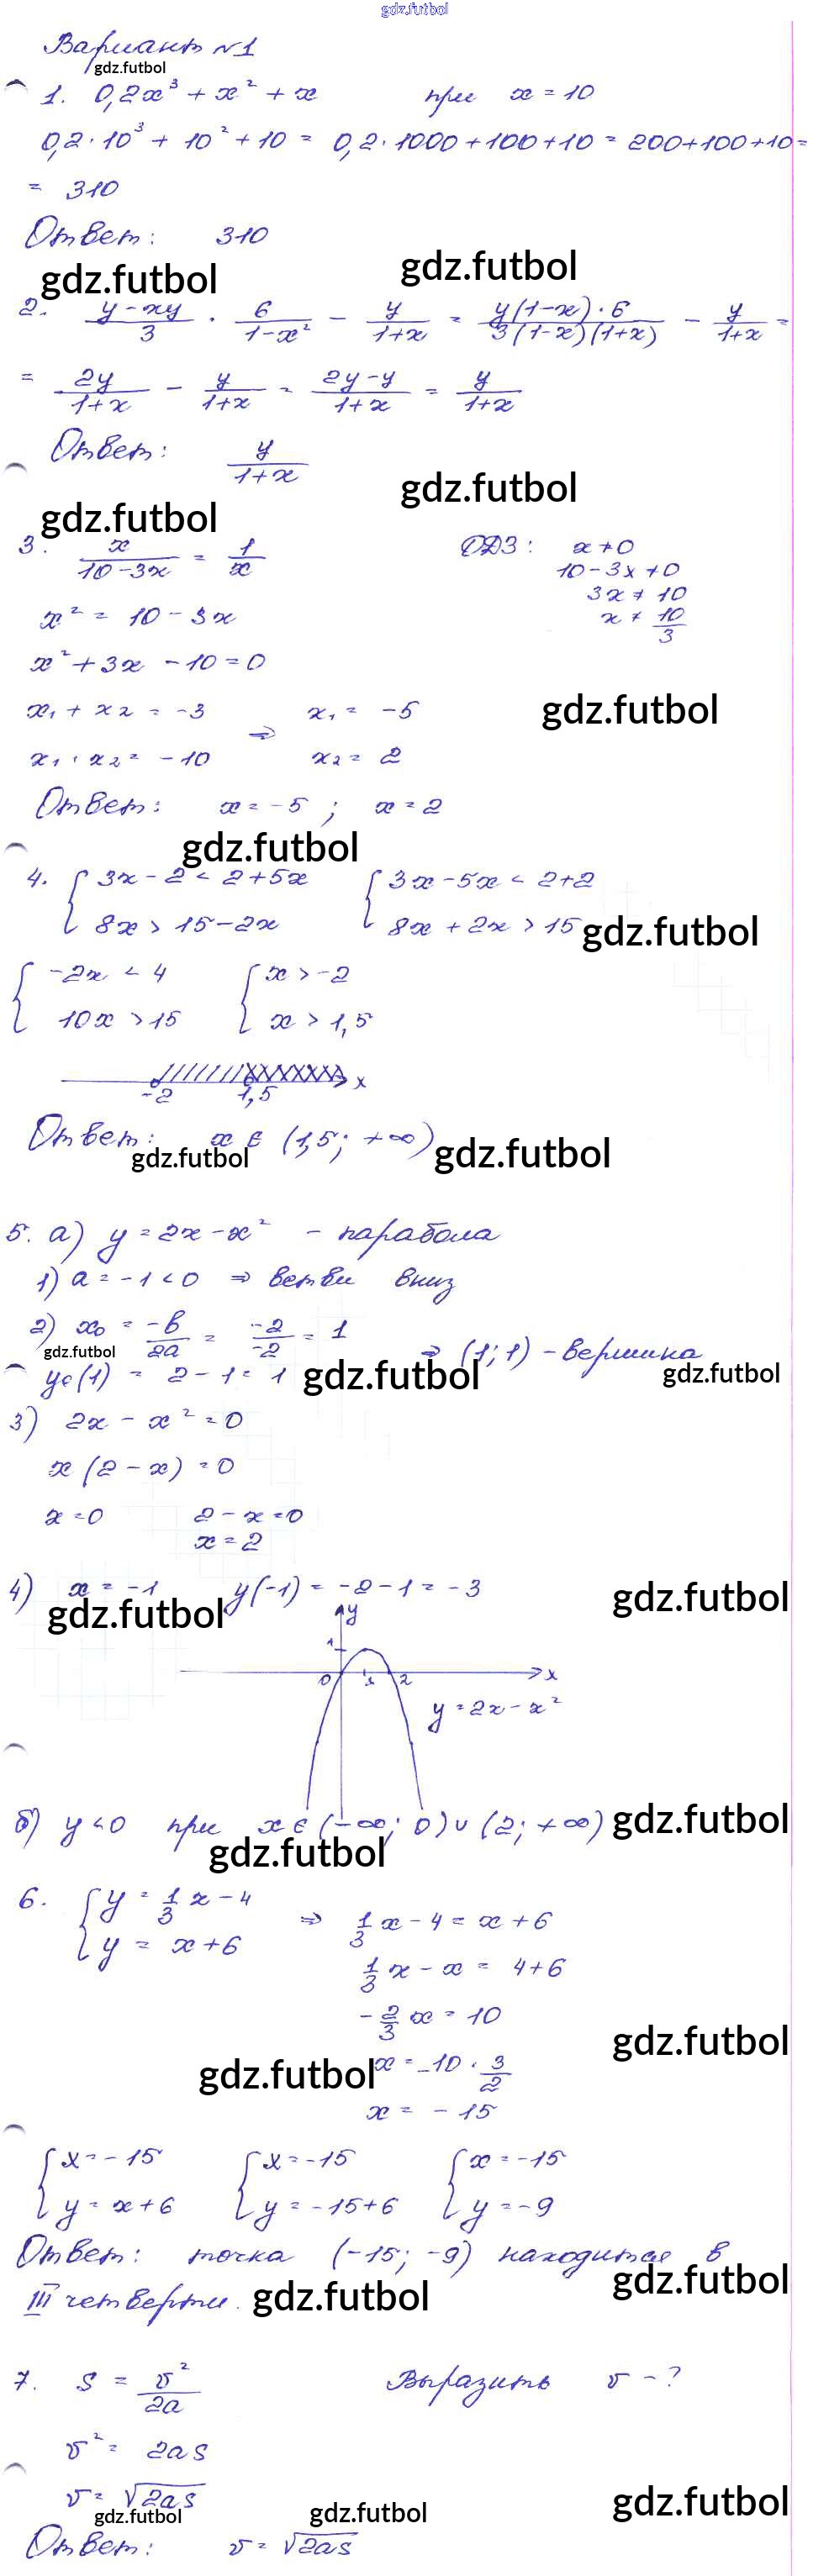 gdz.futbol
Вариант №1
gdz.futbol
1. 0,2x³ + x² + x при x = 10
0,2·10³ + 10² + 10 = 0,2·1000+100+10 = 200+100+10=
= 310
Ответ: 310
gdz.futbol gdz.futbol
2. (y-xy)/3 · 6/(1-x²) - y/(1+x) = (y(1-x)·6)/(3(1-x)(1+x)) - y/(1+x) =
= 2y/(1+x) - y/(1+x) = (2y-y)/(1+x) = y/(1+x)
Ответ: y/(1+x)
gdz.futbol gdz.futbol
3. x/(10-3x) = 1/x ОДЗ: x≠0
10-3x≠0
3x ≠ 10
x ≠ 10/3
x² = 10-3x
x²+3x-10=0
x₁ + x₂ = -3 ⇒ x₁ = -5
x₁ · x₂ = -10 x₂ = 2
gdz.futbol
Ответ: x=-5; x=2
gdz.futbol
4. { 3x-2 < 2+5x { 3x-5x < 2+2
8x > 15-2x 8x+2x > 15
gdz.futbol
{ -2x < 4 { x > -2
10x > 15 x > 1,5
-2 1,5 x
Ответ: x ∈ (1,5; +∞)
gdz.futbol gdz.futbol
5. а) y = 2x-x² - парабола
1) a = -1 < 0 ⇒ ветви вниз
2) x₀ = -b/2a = -2/-2 = 1
⇒ (1; 1) - вершина
y₀(1) = 2-1 = 1
gdz.futbol gdz.futbol gdz.futbol
3) 2x - x² = 0
x(2-x) = 0
x=0 2-x=0
x=2
4) x = -1 y(-1) = -2-1 = -3
gdz.futbol gdz.futbol
y
1
0 1 2 x
y = 2x-x²
б) y<0 при x∈(-∞; 0)∪(2; +∞)
gdz.futbol gdz.futbol
6. { y = 1/3 x - 4 ⇒ 1/3 x - 4 = x+6
y = x+6
1/3 x - x = 4+6
-2/3 x = 10
gdz.futbol
x = -10 · 3/2
gdz.futbol
x = -15
{ x=-15 { x=-15 { x=-15
y=x+6 y=-15+6 y=-9
Ответ: точка (-15; -9) находится в
III четверти.
gdz.futbol gdz.futbol
7. S = v²/2a Выразить v-?
v² = 2aS
v = √2aS
gdz.futbol gdz.futbol gdz.futbol
Ответ: v = √2aS